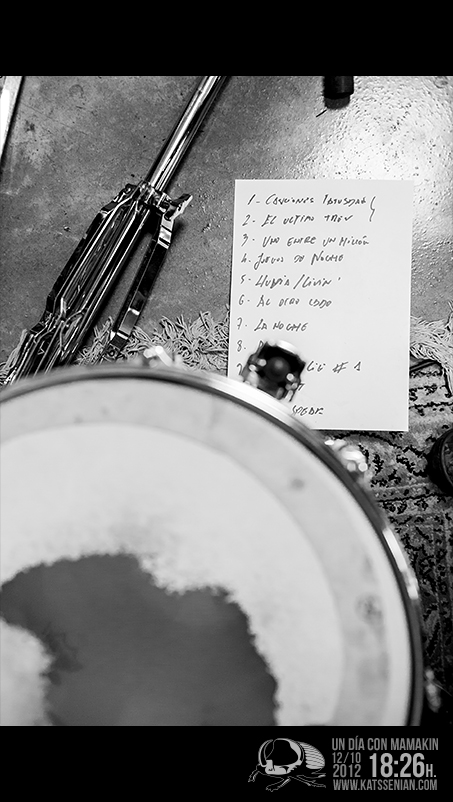 1- CANCIONES TATUADAS
2- EL ULTIMO TREN
3- UNO ENTRE UN MILLÓN
4- JUEGOS DE NOCHE
5- LLUVIA / LIVIN'
6- AL OTRO LADO
7- LA NOCHE
8-
# 1
UN DÍA CON MAMAKIN
12/10
2012 18:26H.
WWW.KATSSENIAN.COM